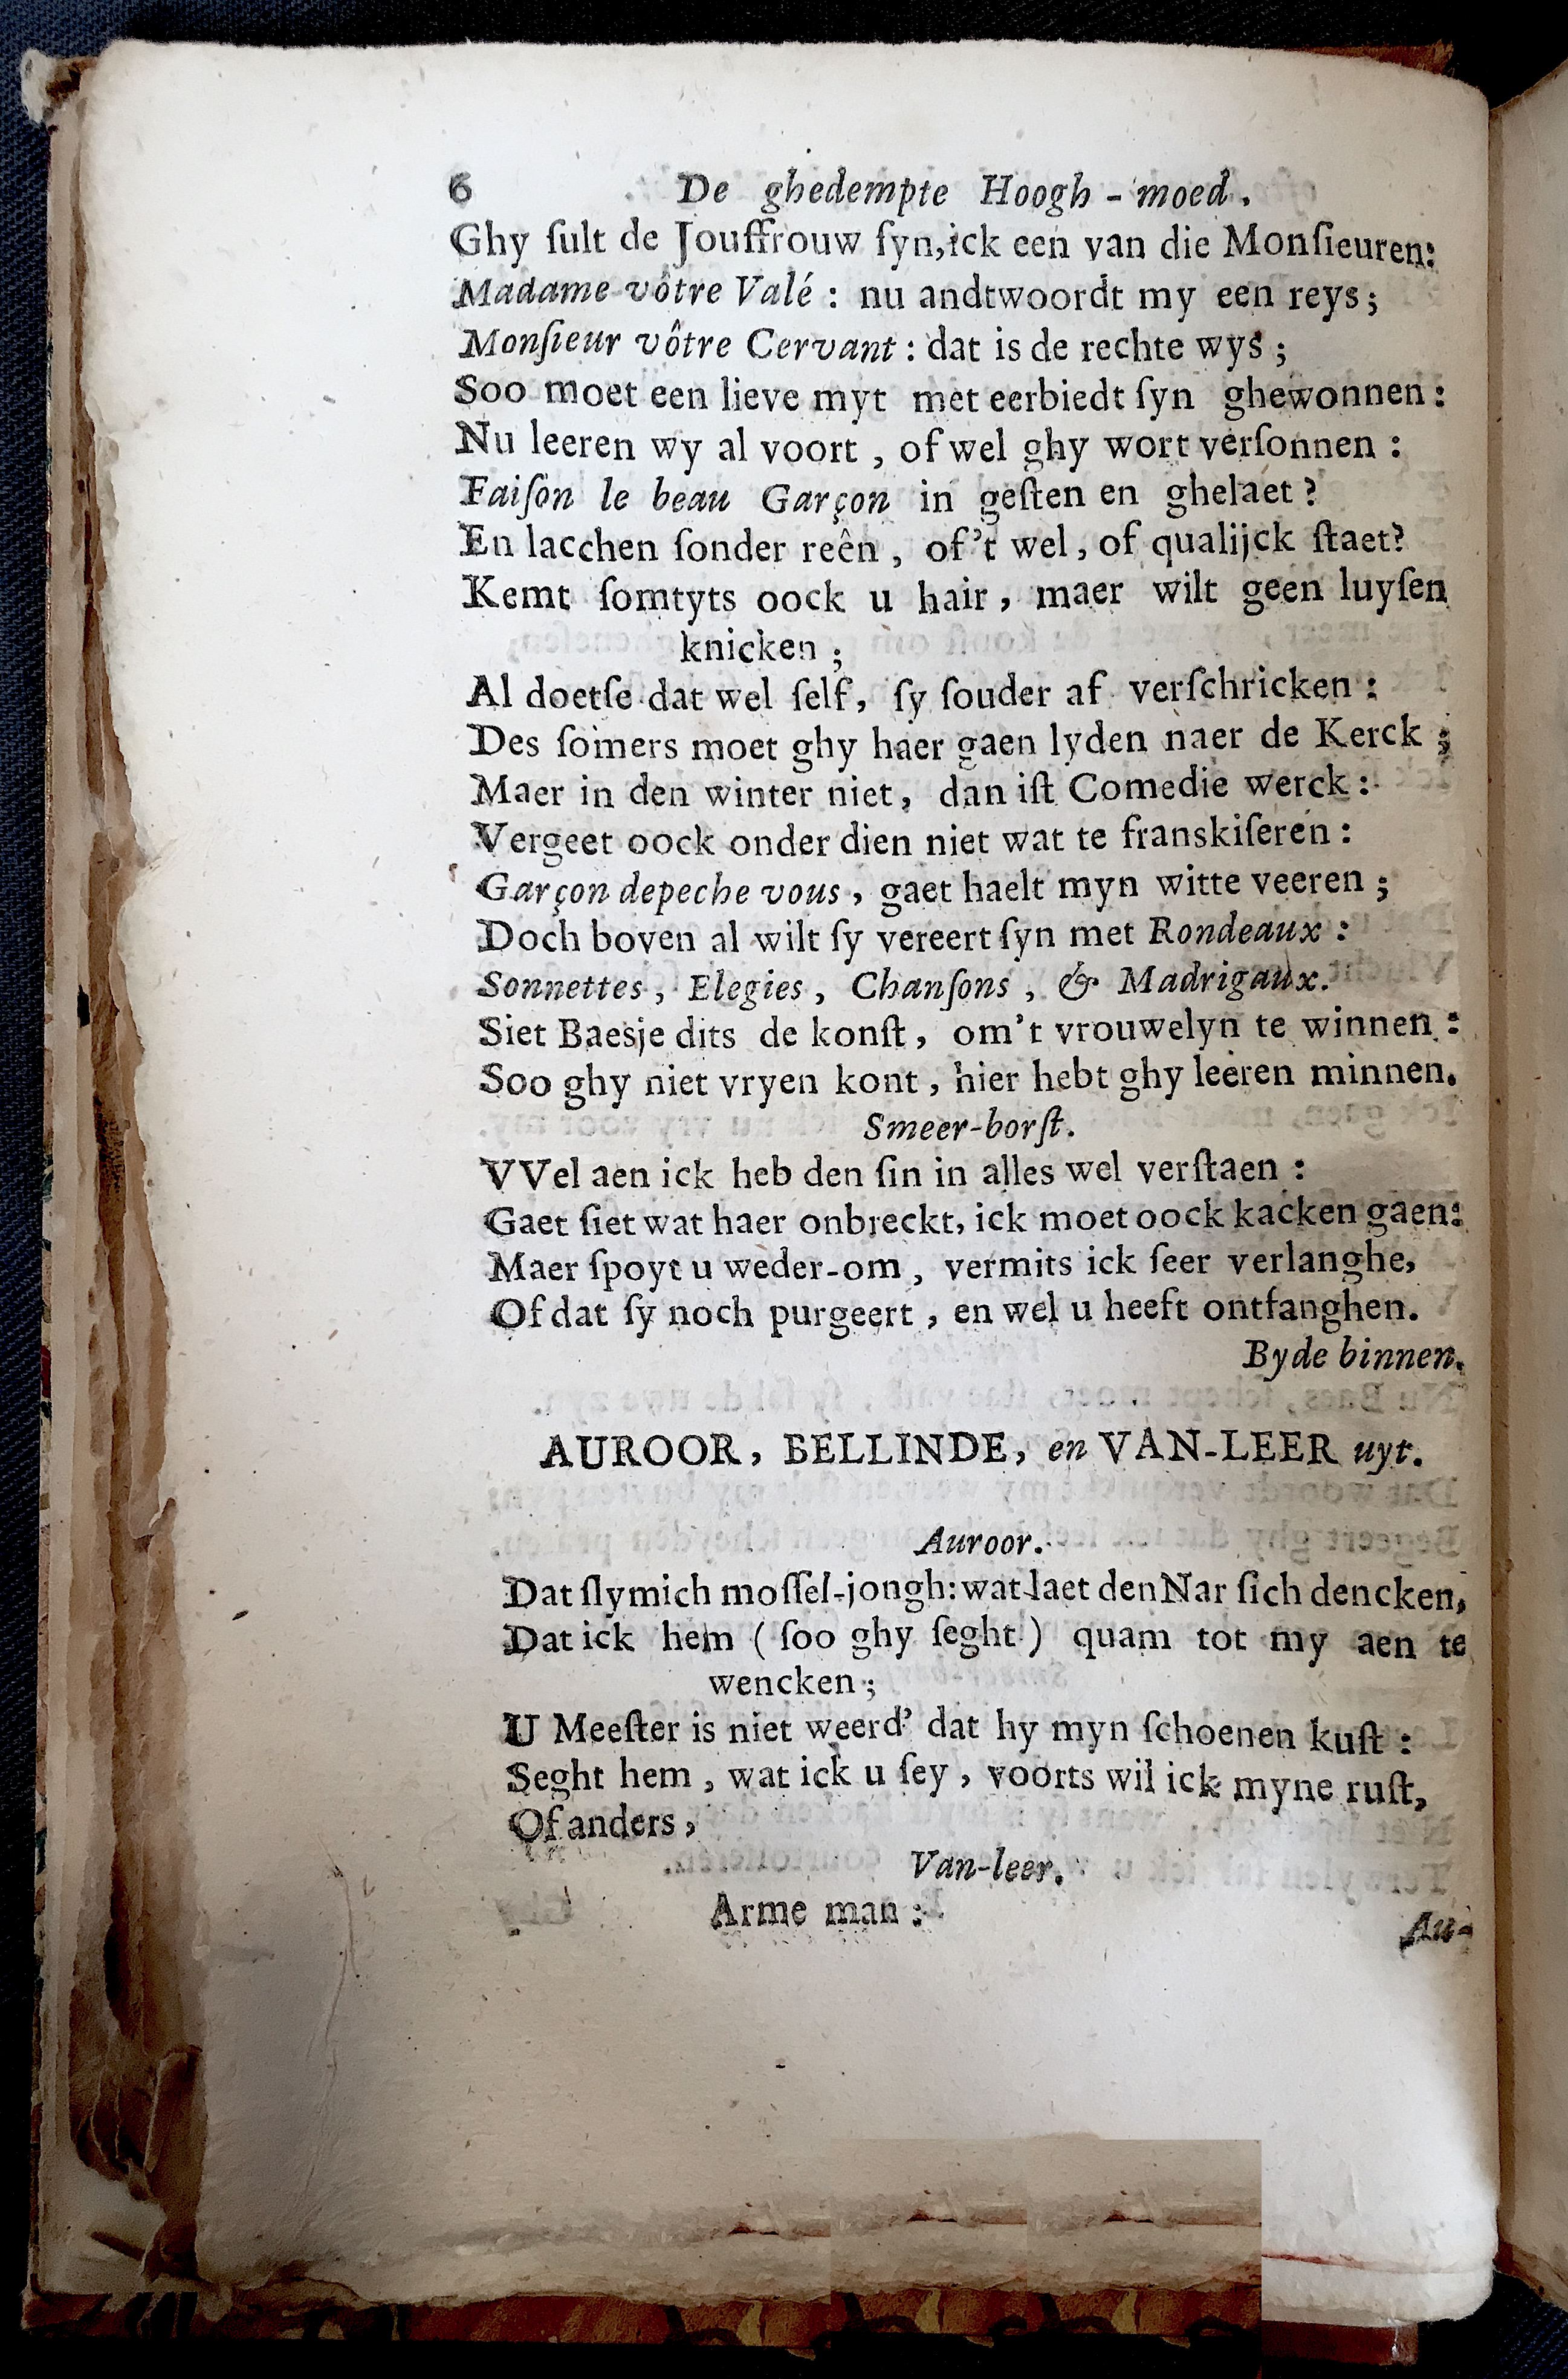 6 De ghedempte Hoogh-moed.
Ghy ſult de Jouffrouw ſyn, ick een van die Monſieuren:
Madame vôtre Valé : nu andtwoordt my een reys ;
Monſieur vôtre Cervant : dat is de rechte wys ;
Soo moet een lieve myt met eerbiedt ſyn ghewonnen :
Nu leeren wy al voort , of wel ghy wort verſonnen :
Faiſon le beau Garçon in geſten en ghelaet ?
En lacchen ſonder reên , of 't wel , of qualijck ſtaet?
Kemt ſomtyts oock u hair , maer wilt geen luyſen
knicken ;
Al doetſe dat wel ſelf, ſy ſouder af verſchricken :
Des ſomers moet ghy haer gaen lyden naer de Kerck ;
Maer in den winter niet , dan iſt Comedie werck :
Vergeet oock onder dien niet wat te franskiſeren :
Garçon depeche vous , gaet haelt myn witte veeren ;
Doch boven al wilt ſy vereert ſyn met Rondeaux :
Sonnettes , Elegies , Chanſons , & Madrigaux.
Siet Baesje dits de konſt , om't vrouwelyn te winnen :
Soo ghy niet vryen kont , hier hebt ghy leeren minnen.
Smeer-borſt.
VVel aen ick heb den ſin in alles wel verſtaen :
Gaet ſiet wat haer onbreckt, ick moet oock kacken gaen:
Maer ſpoyt u weder-om , vermits ick ſeer verlanghe,
Of dat ſy noch purgeert , en wel u heeft ontfanghen.
Byde binnen.
AUROOR, BELLINDE, en VAN-LEER uyt.
Auroor.
Dat ſlymich moſſel-jongh: wat laet den Nar ſich dencken,
Dat ick hem ( ſoo ghy ſeght ) quam tot my aen te
wencken ;
U Meeſter is niet weerd' dat hy myn ſchoenen kuſt :
Seght hem , wat ick u ſey , voorts wil ick myne ruſt,
Of anders ,
Van-leer.
Arme man :
Au-